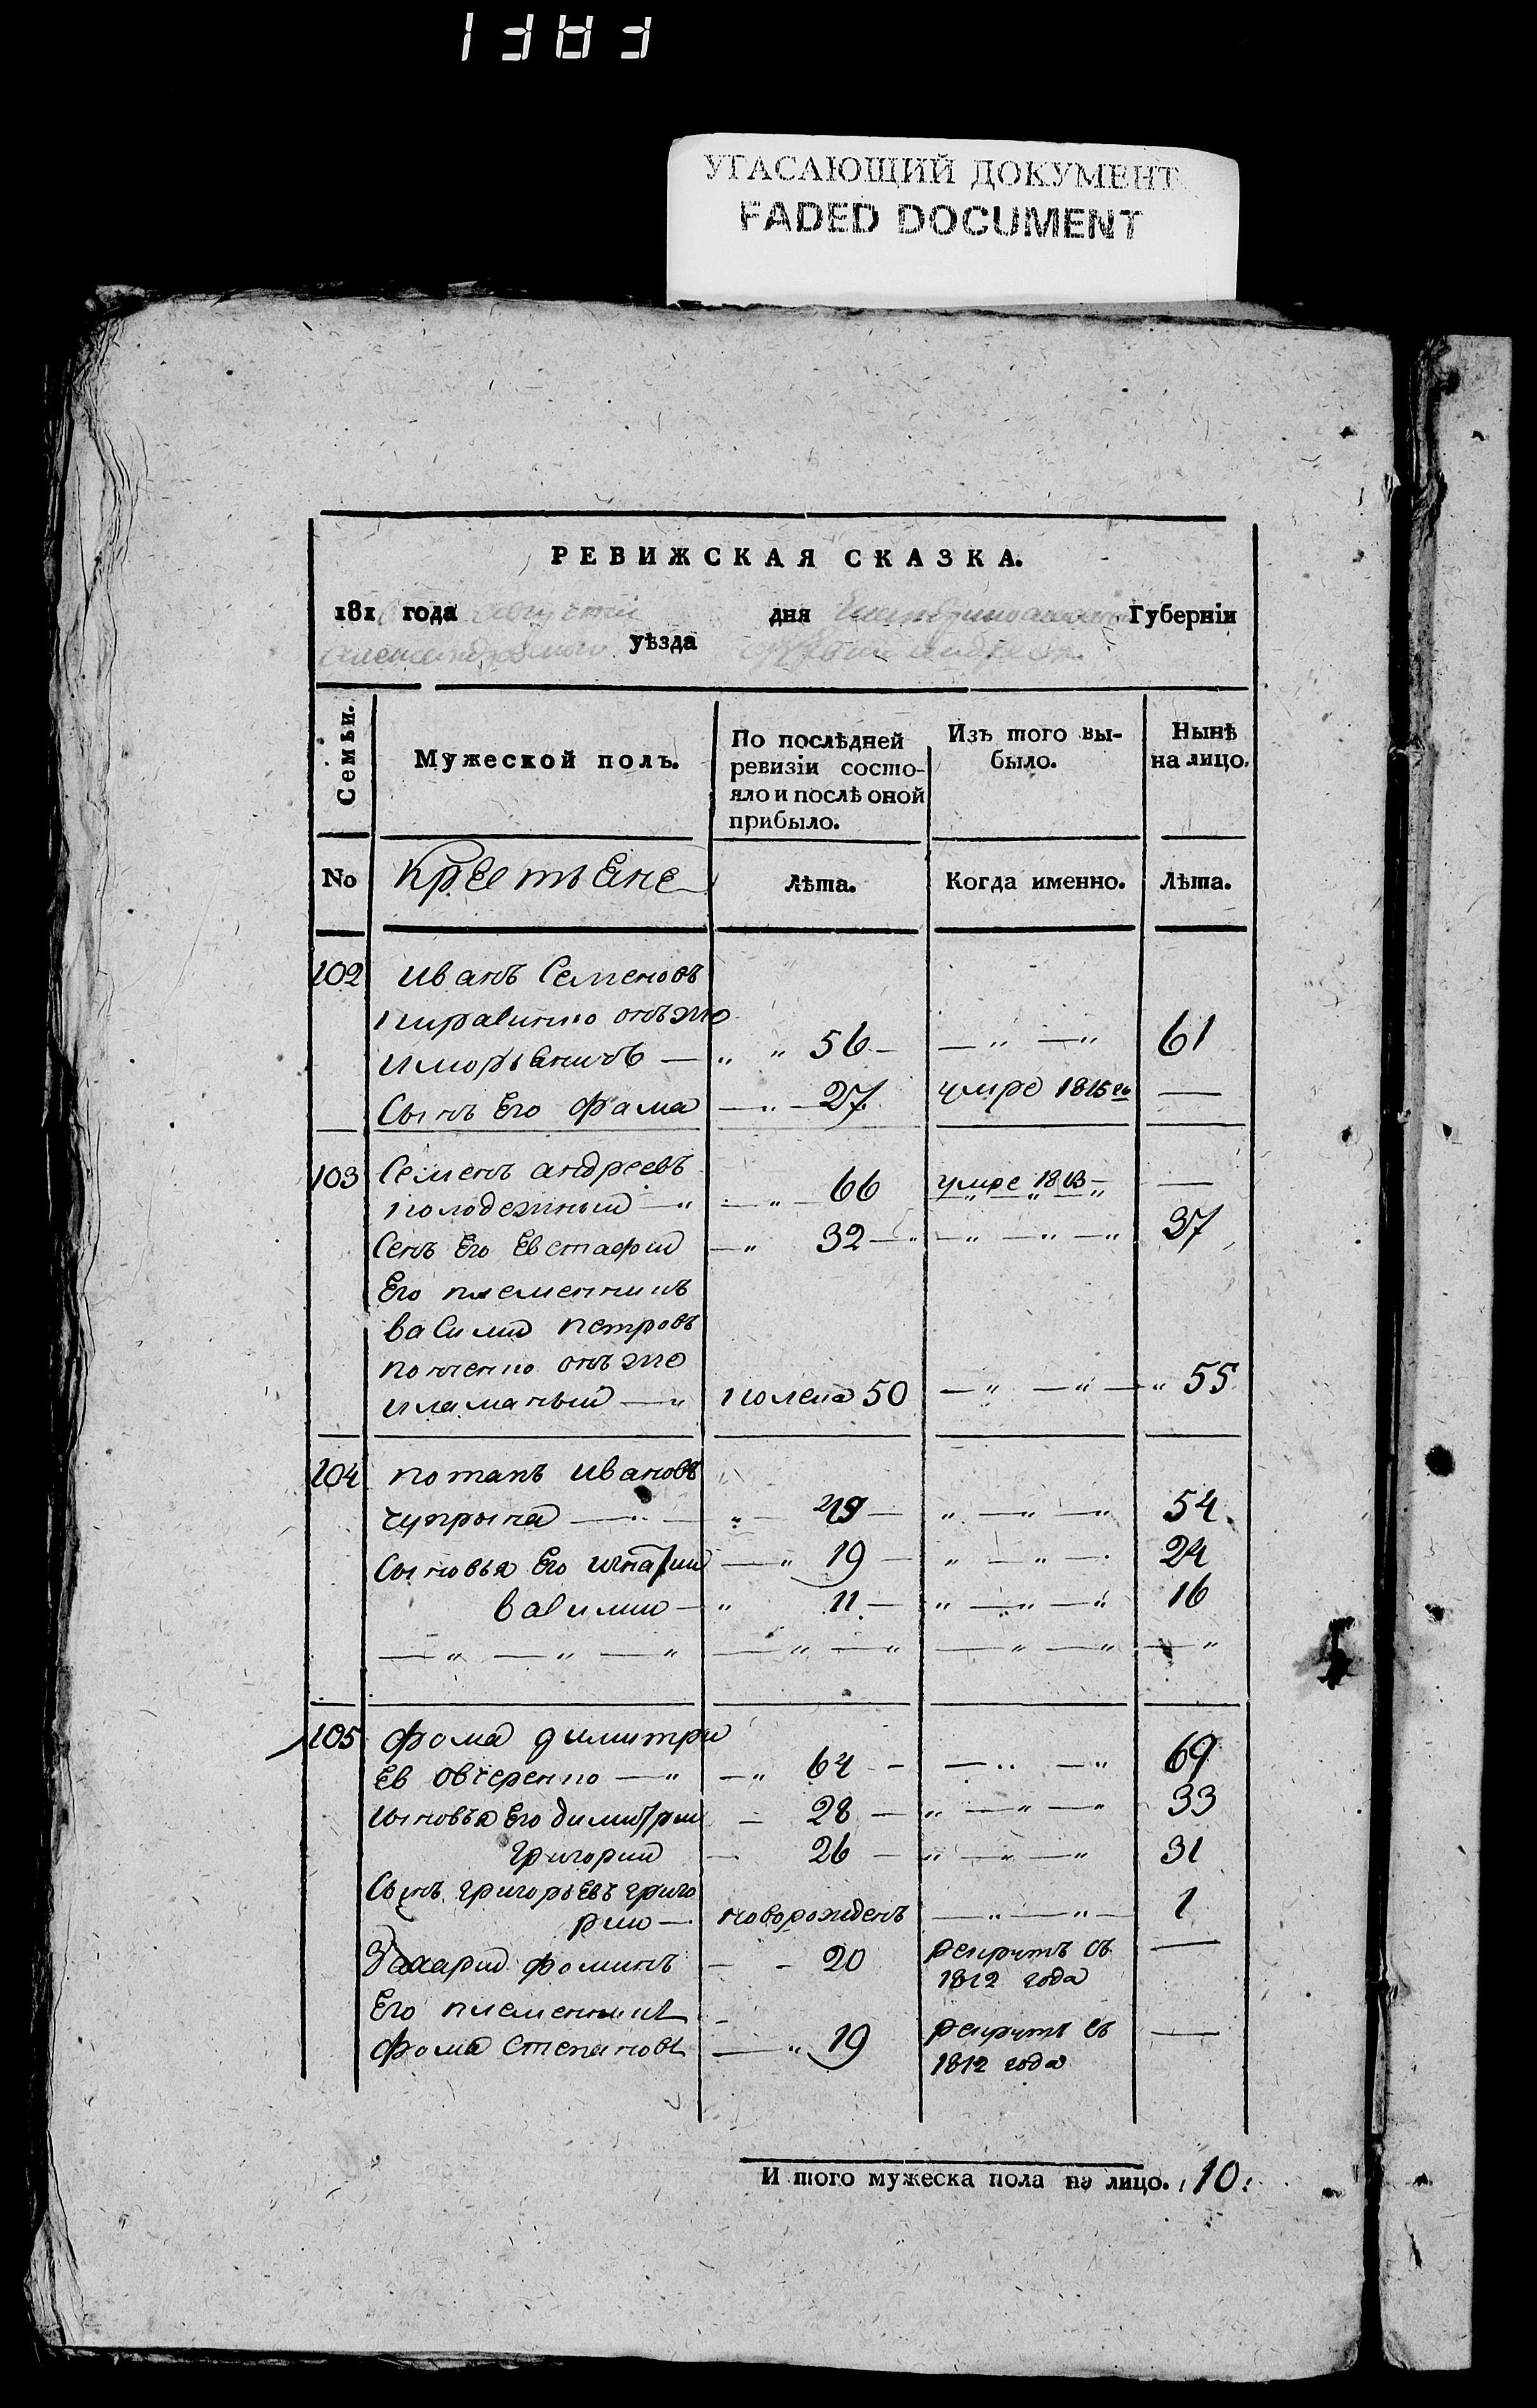 УГАСАЮЩИЙ ДОКУМЕНТ
FADED DOCUMENT
РЕВИЖСКАЯ СКАЗКА.
181 года дня Губернїи
уѣзда
Семьи.
Мужеской полъ.
По послѣдней ревизїи состо-
яло и послѣ оной
прибыло.
Изъ того вы-
было.
Нынѣ
на лицо.
No
Крестьяне
Лѣта.
Когда именно.
Лѣта.
102 иванъ Семеновъ
онъже
56 61
Сынъ Его Фама 27 умре 1815го
103 Семенъ андреевъ
колодежный 66 умре 1813
Сынъ Его Евстафий 32 37
Его племенникъ
василий петровъ
онъже
50 55
104 потапъ ивановъ
чупрына 49 54
Сыновья Его игнатий 19 24
василий 11 16
105 фома димитри
Ев овчеренко 64 69
сыновья Его димитрий 28 33
григорий 26 31
Сынъ григорьевъ григо
рий новорожденъ 1
Захарий фоминъ 20 рекрутъ съ
1812 года
Его племенникъ
фома степановъ 19 рекрутъ съ
1812 года
И того мужеска пола на лицо. 10.